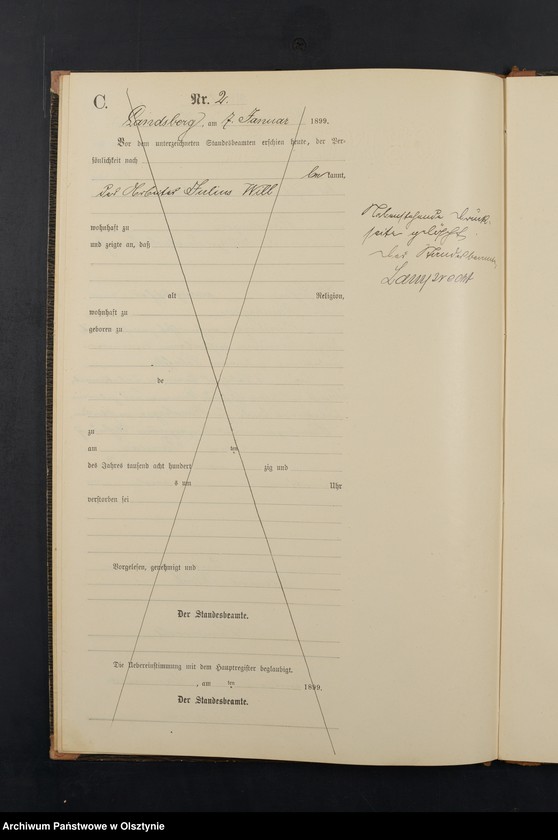 C.
Nr. 2.
Landsberg, am 7. Januar 1899.
Vor dem unterzeichneten Standesbeamten erschien heute, der Per-
sönlichkeit nach
bekannt,
der Julius Will
wohnhaft zu
und zeigte an, daß
alt Religion,
wohnhaft zu
geboren zu
de
zu
am ten
des Jahres tausend acht hundert zig und
s um Uhr
verstorben sei
Vorgelesen, genehmigt und
Der Standesbeamte.
Die Uebereinstimmung mit dem Hauptregister beglaubigt.
, am ten 1899.
Der Standesbeamte.
Nebenstehende Druck-
seite gelöscht.
Der Standesbeamte
Archiwum Państwowe w Olsztynie